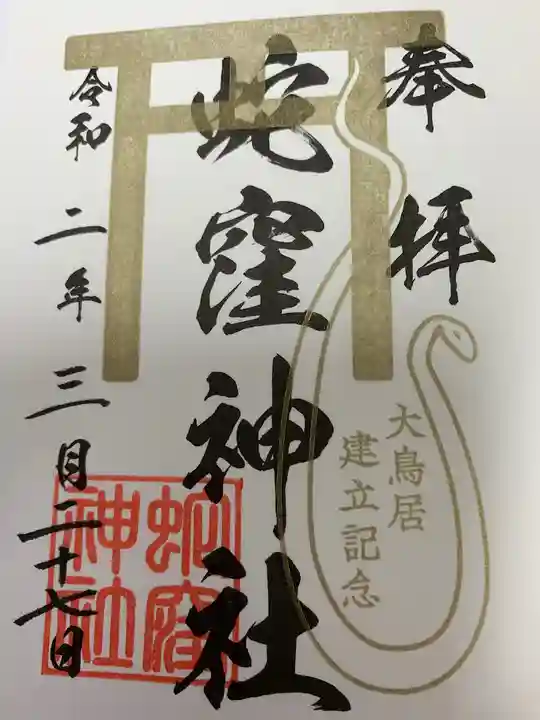 奉拝
大鳥居
建立記念
蛇窪神社
蛇窪
神社
令和二年三月二十七日